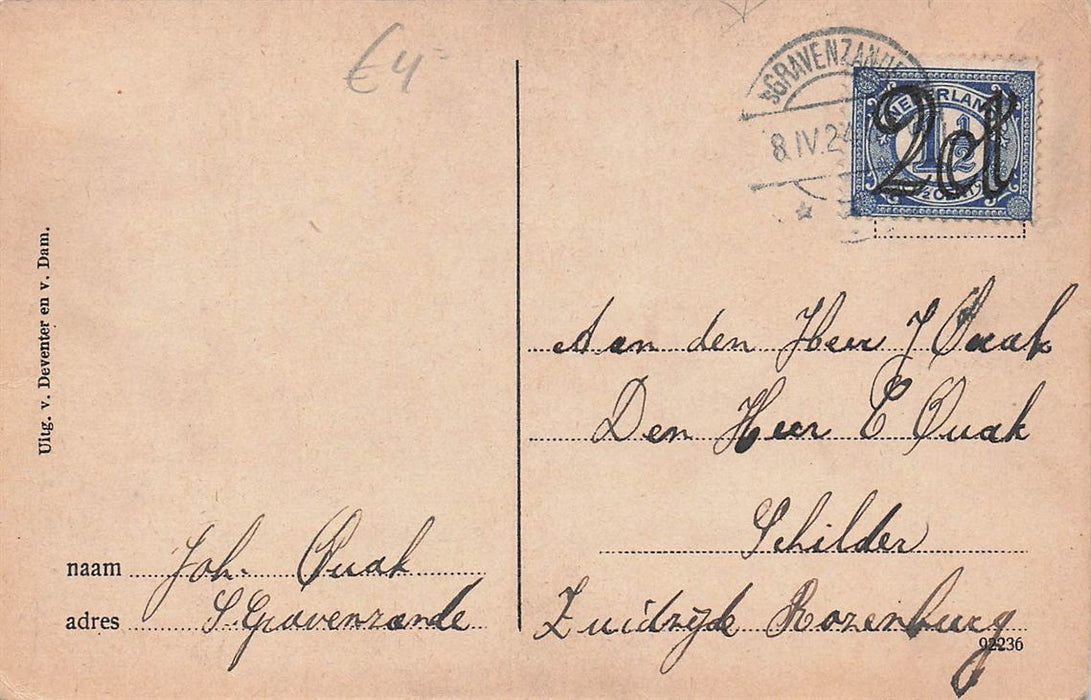 €4-
'sGRAVENZANDE
8.IV.2
NEDERLAND
1½
2ct
Uitg. v. Deventer en v. Dam.
Aan den Heer J Quak
Den Heer C Quak
Schilder
Zuidzijde Rozenburg
92236
naam Joh. Quak
adres S Gravenzande